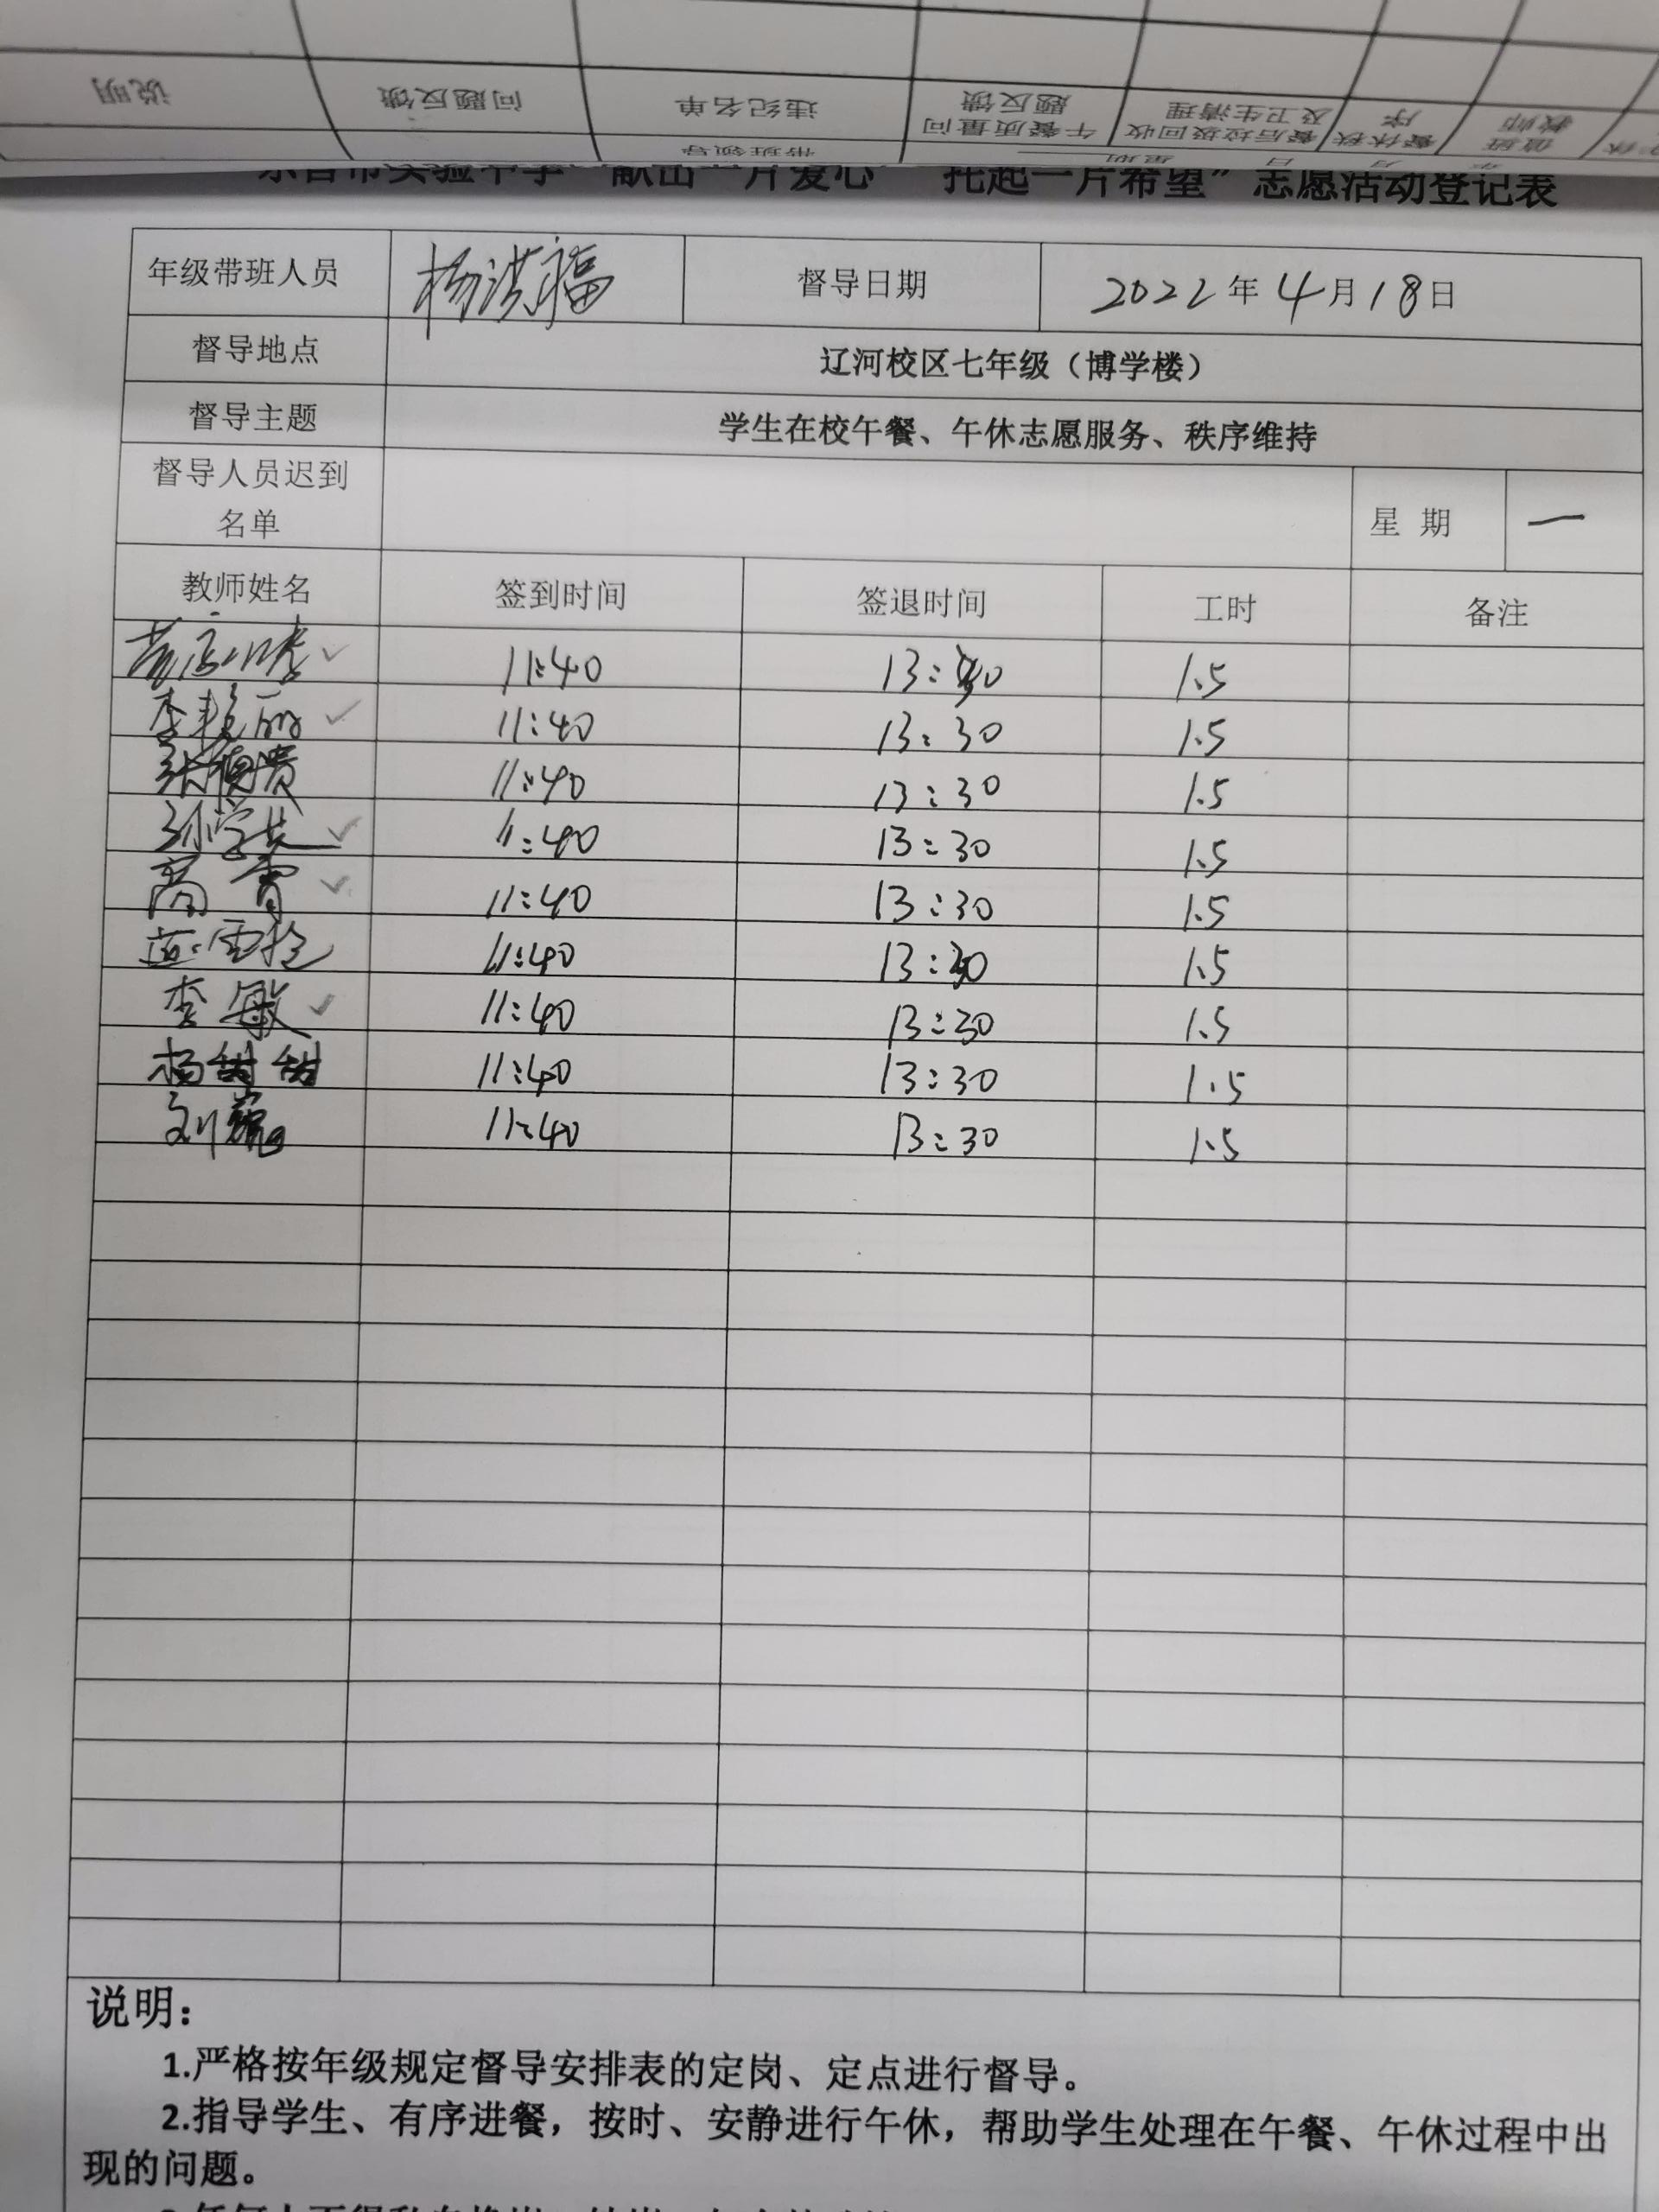 说明 问题反馈 违纪名单 午餐质量问题反馈 餐后垃圾回收及卫生清理 餐休秩序 值班教师
带班领导
实验中学“献出一片爱心 托起一片希望”志愿活动登记表
年级带班人员 杨洪福 督导日期 2022年4月18日
督导地点 辽河校区七年级（博学楼）
督导主题 学生在校午餐、午休志愿服务、秩序维持
督导人员迟到名单 星 期 一
教师姓名 签到时间 签退时间 工时 备注
11:40 13:30 1.5
李艳丽 ✓ 11:40 13:30 1.5
张梅贵 11:40 13:30 1.5
孙学英 ✓ 11:40 13:30 1.5
高霄 ✓ 11:40 13:30 1.5
11:40 13:30 1.5
李敏 ✓ 11:40 13:30 1.5
杨甜甜 11:40 13:30 1.5
刘巍 11:40 13:30 1.5
说明：
1.严格按年级规定督导安排表的定岗、定点进行督导。
2.指导学生、有序进餐，按时、安静进行午休，帮助学生处理在午餐、午休过程中出
现的问题。